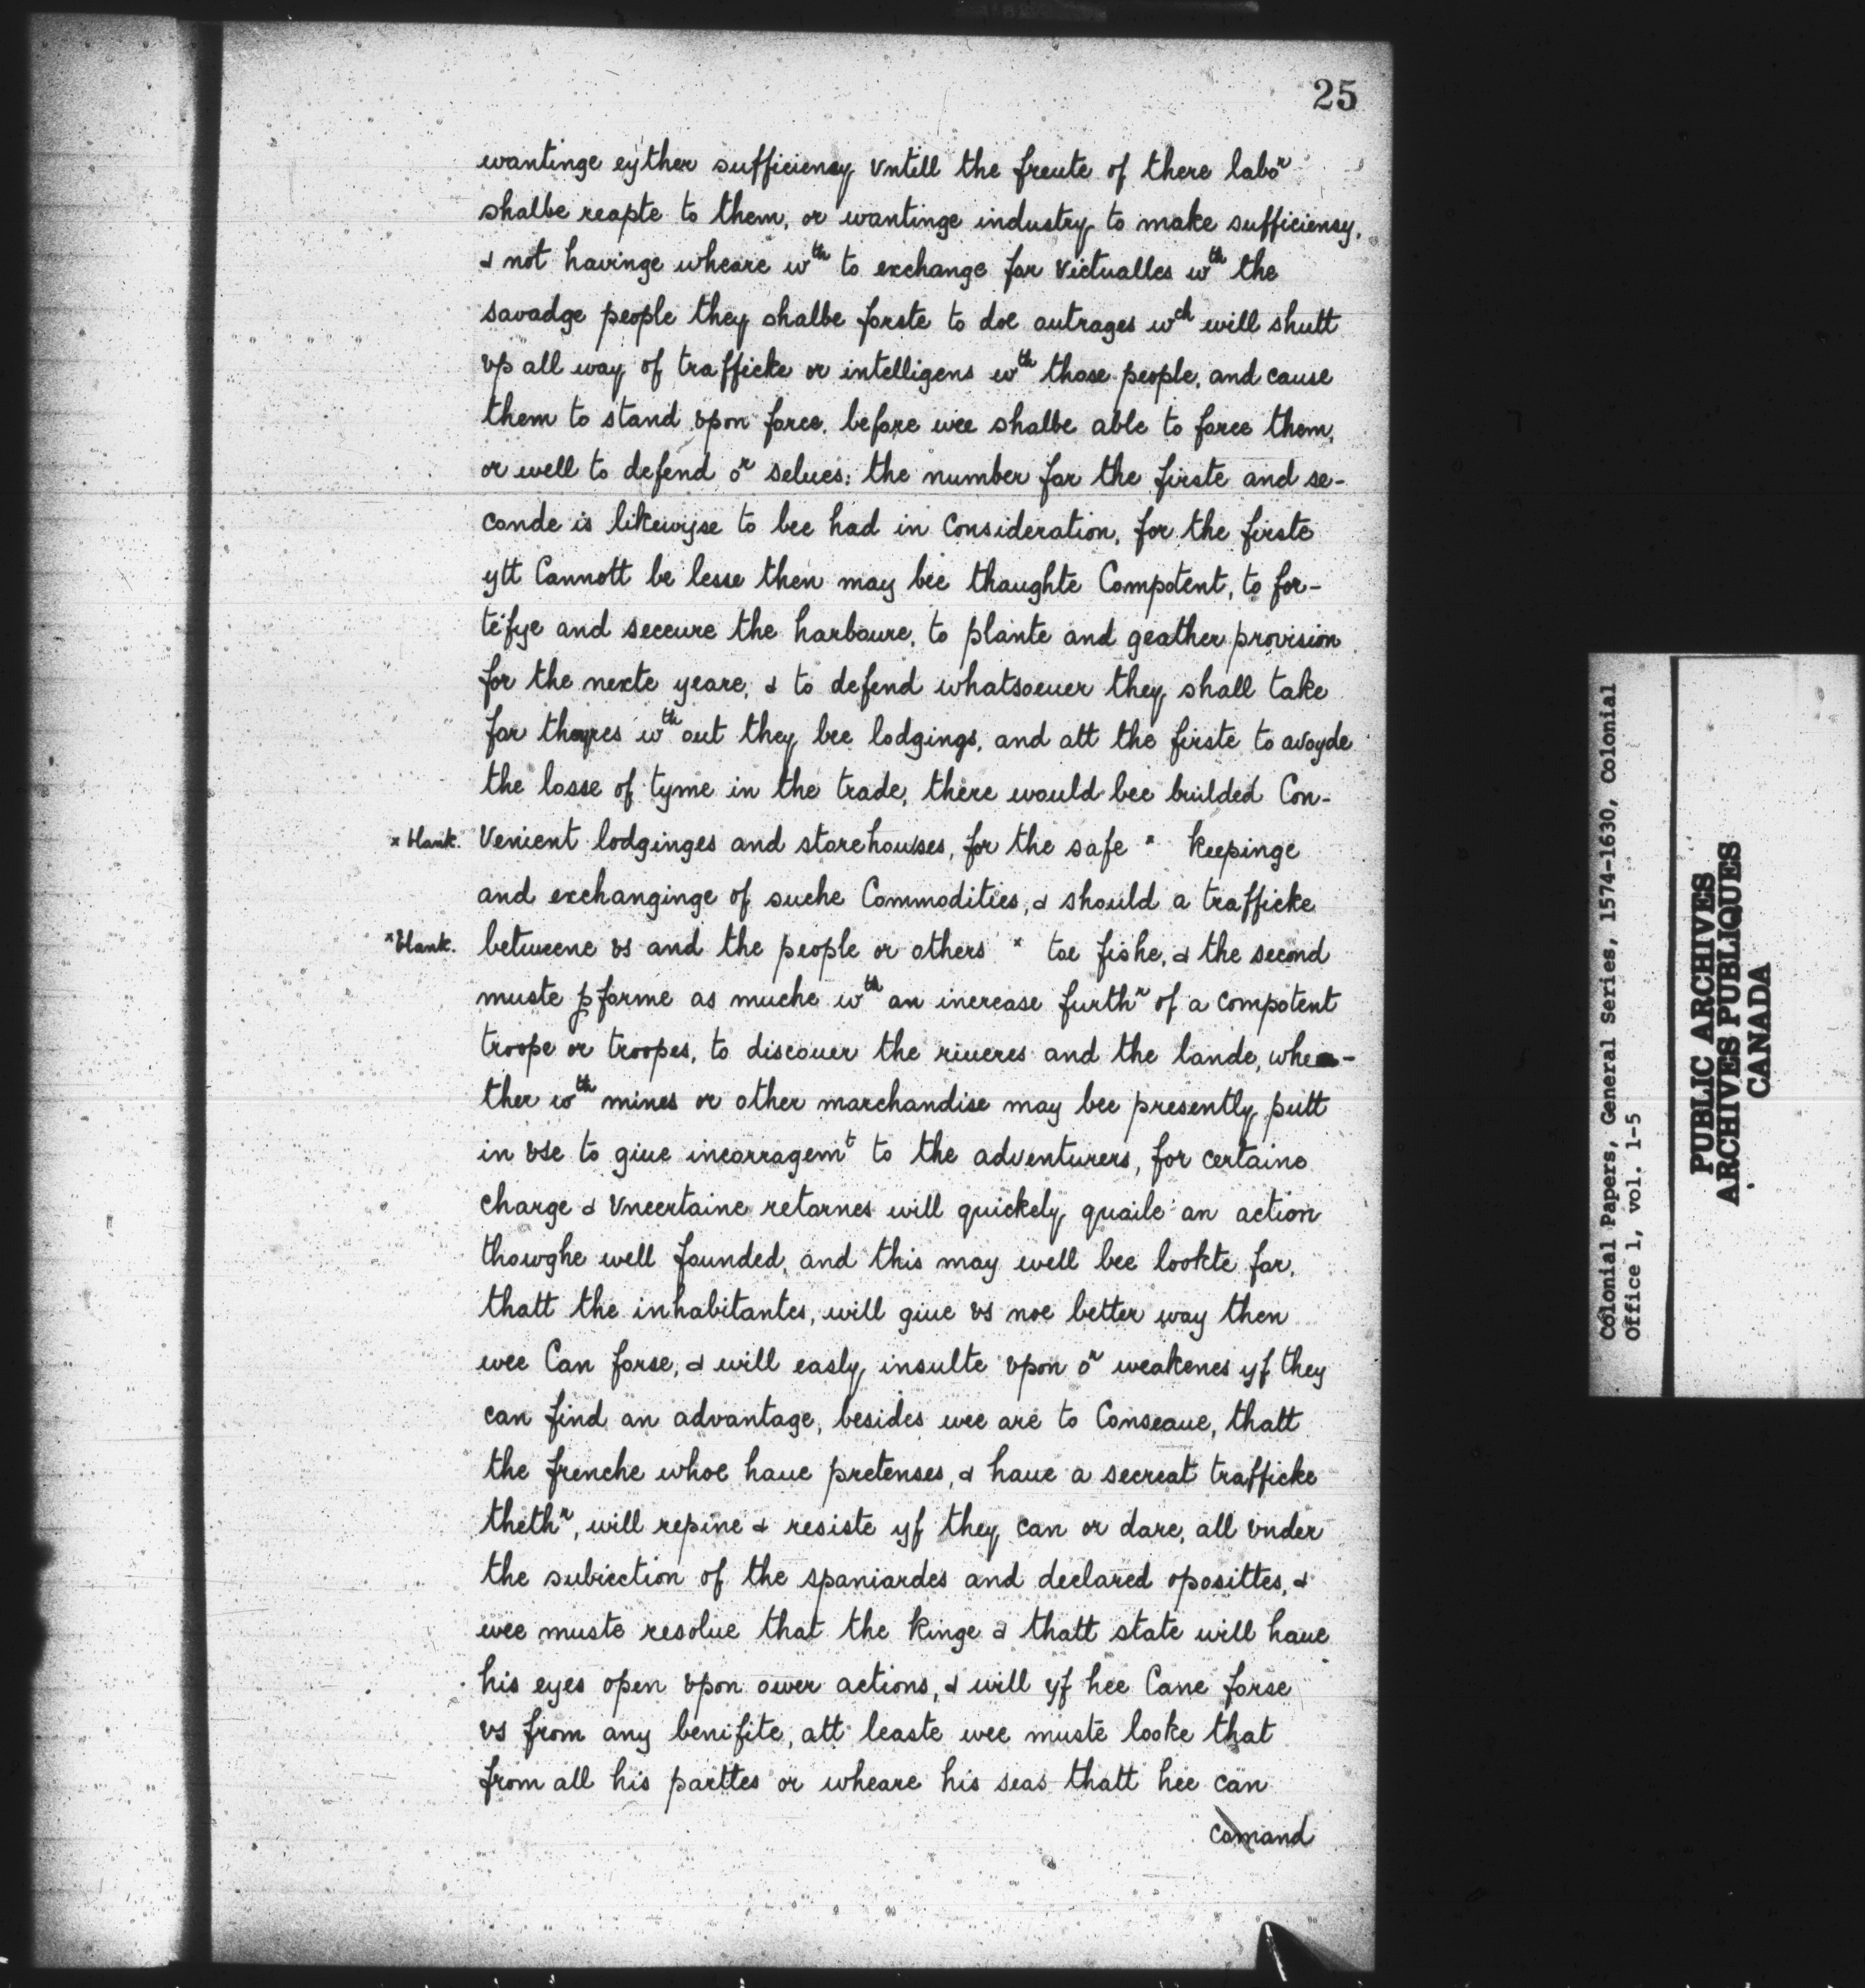 25
wantinge eyther sufficiency vntill the freute of there labo^r
shalbe reapte to them, or wantinge industry to make sufficiensy,
& not havinge wheare w^th to exchange for victualles w^th the
savadge people they shalbe forste to doe outrages w^ch will shutt
vp all way of trafficke or intelligens w^th those people, and cause
them to stand vpon force, before wee shalbe able to force them,
or well to defend o^r selues: the number for the firste and se-
conde is likewyse to bee had in Consideration, for the firste
ytt Cannott be lesse then may bee thoughte Compotent, to for-
tefye and seceure the harboure, to plante and geather provision
for the nexte yeare, & to defend whatsoeuer they shall take
for theyres w^th out they bee lodgings, and att the firste to avoyde
the losse of tyme in the trade, there would bee builded Con-
x blank. Venient lodginges and storehowses, for the safe x keepinge
and exchanginge of suche Commodities, & should a trafficke
x blank. betweene vs and the people or others x toe fishe, & the second
muste pforme as muche w^th an increase furth^r of a compotent
troope or troopes, to discouer the riueres and the lande, whe-
ther w^th mines or other marchandise may bee presently putt
in vse to giue incorragem^t to the adventurers, for certaine
charge & vncertaine retornes will quickely quaile an action
thowghe well founded, and this may well bee lookte for,
thatt the inhabitantes, will giue vs noe better way then
wee Can forse, & will easly insulte vpon o^r weakenes yf they
can find an advantage, besides wee are to Conseaue, thatt
the frenche whoe haue pretenses, & haue a secreat trafficke
theth^r, will repine & resiste yf they can or dare, all vnder
the subiection of the spaniardes and declared oposittes, &
wee muste resolue that the Kinge & thatt state will haue
his eyes open vpon ower actions, & will yf hee Cane forse
vs from any benifite, att leaste wee muste looke that
from all his parttes or wheare his seas thatt hee can
comand
Colonial Papers, General Series, 1574-1630, Colonial
Office 1, vol. 1-5
PUBLIC ARCHIVES
ARCHIVES PUBLIQUES
CANADA